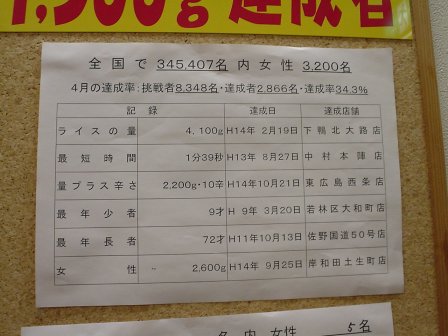 1,300g 達成者
全国で 345,407名 内女性 3,200名
4月の達成率:挑戦者8,348名・達成者2,866名・達成率34.3%
記録 達成日 達成店舗
ライスの量 4,100g H14年 2月19日 下鴨北大路店
最短時間 1分39秒 H13年 8月27日 中村本陣店
量プラス辛さ 2,200g・10辛 H14年10月21日 東広島西条店
最年少者 9才 H 9年 3月20日 若林区大和町店
最年長者 72才 H11年10月13日 佐野国道50号店
女性 2,600g H14年 9月25日 岸和田土生町店
名 内 女性 5名